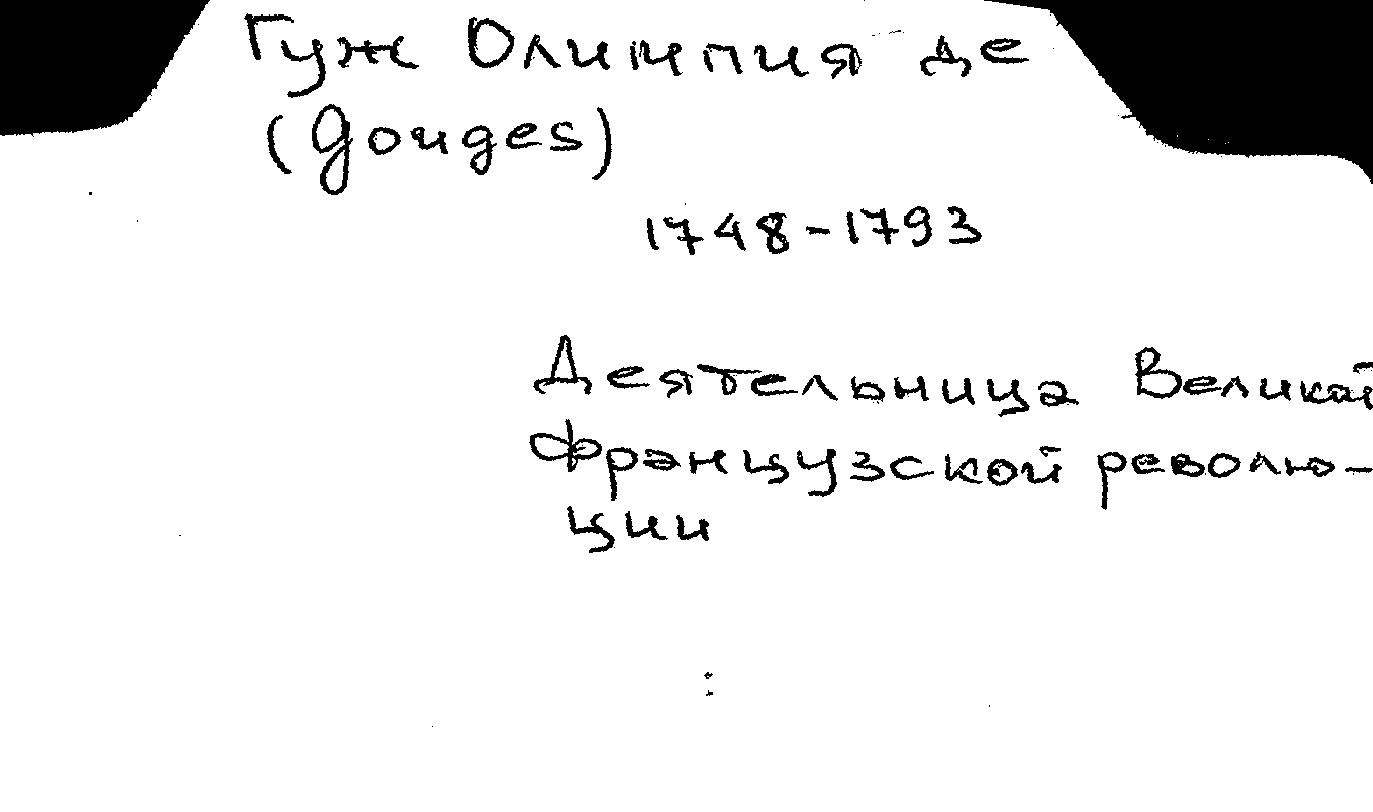 Гуж Олимпия де
(Gouges)
1748-1793
Деятельница Великой
французской револю-
ции